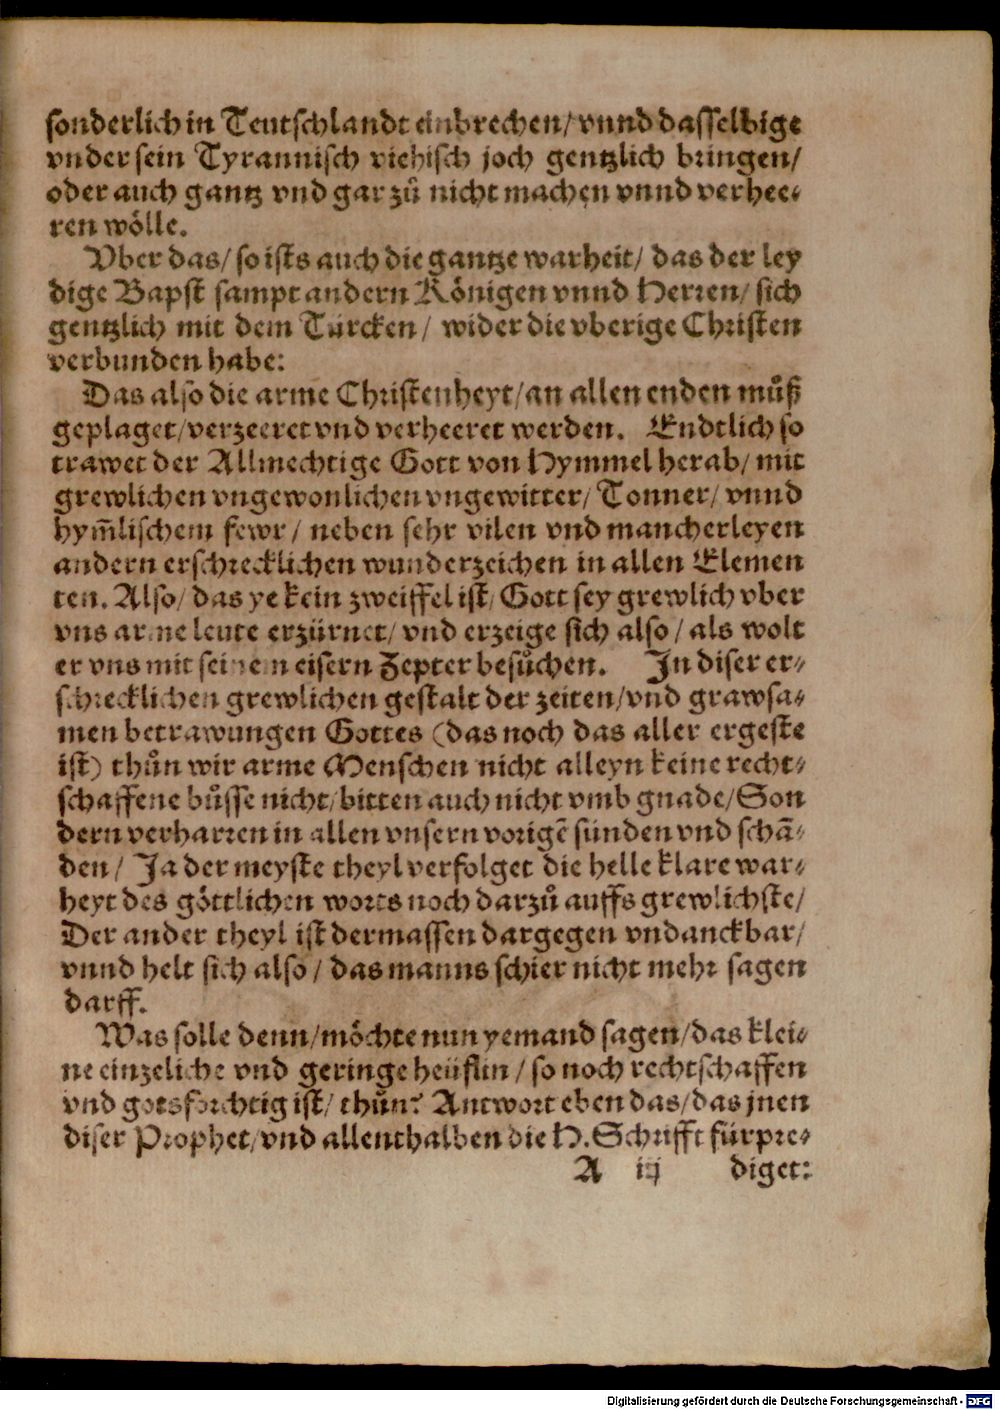 sonderlich in Teutschlandt einbrechen/ vnnd dasselbige
vnder sein Tyrannisch viehisch joch gentzlich bringen/
oder auch gantz vnd gar zů nicht machen vnnd verhee-
ren wölle.
Vber das/ so ists auch die gantze warheit/ das der ley
dige Bapst sampt andern Königen vnnd Herren/ sich
gentzlich mit dem Türcken/ wider die vberige Christen
verbunden habe:
Das also die arme Christenheyt/ an allen enden můß
geplaget/ verzeeret vnd verheeret werden. Endtlich so
trawet der Allmechtige Gott von Hymmel herab/ mit
grewlichen vngewonlichen vngewitter/ Tonner/ vnnd
hym̃lischem fewr/ neben sehr vilen vnd mancherleyen
andern erschrecklichen wunderzeichen in allen Elemen
ten. Also/ das ye kein zweiffel ist/ Gott sey grewlich vber
vns arme leute erzürnet/ vnd erzeige sich also/ als wolt
er vns mit seinem eisern Zepter besůchen. In diser er-
schrecklichen grewlichen gestalt der zeiten/ vnd grawsa-
men betrawungen Gottes (das noch das aller ergeste
ist) thůn wir arme Menschen nicht alleyn keine recht-
schaffene bůsse nicht/ bitten auch nicht vmb gnade/ Son
dern verharren in allen vnsern vorigẽ sünden vnd schã-
den/ Ja der meyste theyl verfolget die helle klare war-
heyt des göttlichen worts noch darzů auffs grewlichste/
Der ander theyl ist dermassen dargegen vndanckbar/
vnnd helt sich also/ das manns schier nicht mehr sagen
darff.
Was solle denn/ möchte nun yemand sagen/ das klei-
ne einzeliche vnd geringe heüflin/ so noch rechtschaffen
vnd gotsforchtig ist/ thůn? Antwort eben das/ das jnen
diser Prophet/ vnd allenthalben die H. Schrifft fürpre-
A iij diget:
Digitalisierung gefördert durch die Deutsche Forschungsgemeinschaft - DFG